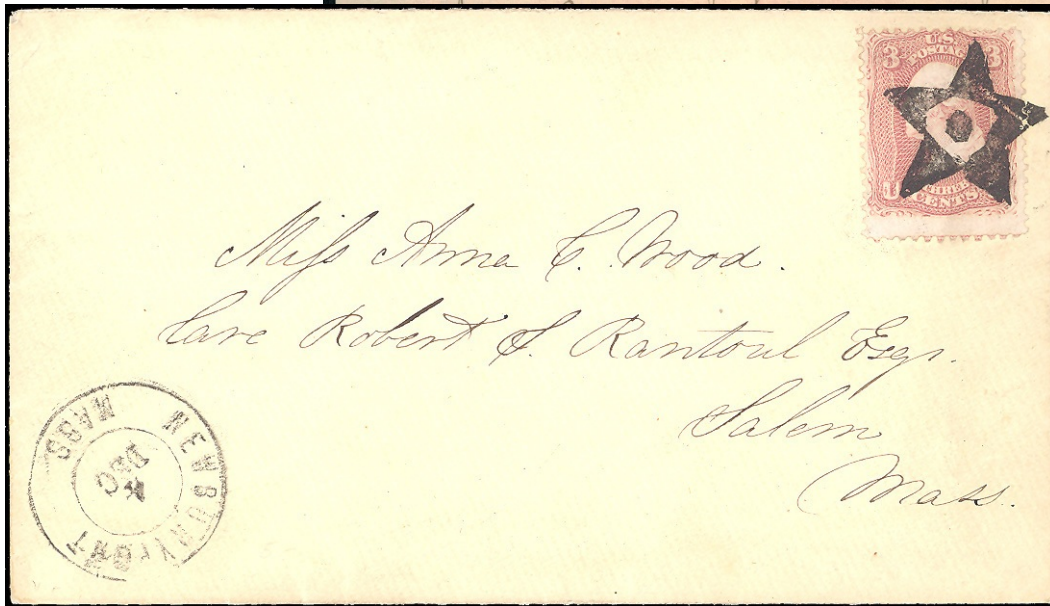 3 U.S. POSTAGE 3
THREE
CENTS
Miss Anna C. Wood.
Care Robert S. Rantoul Esqr.
Salem
Mass.
NEWBURYPORT
MASS
DEC